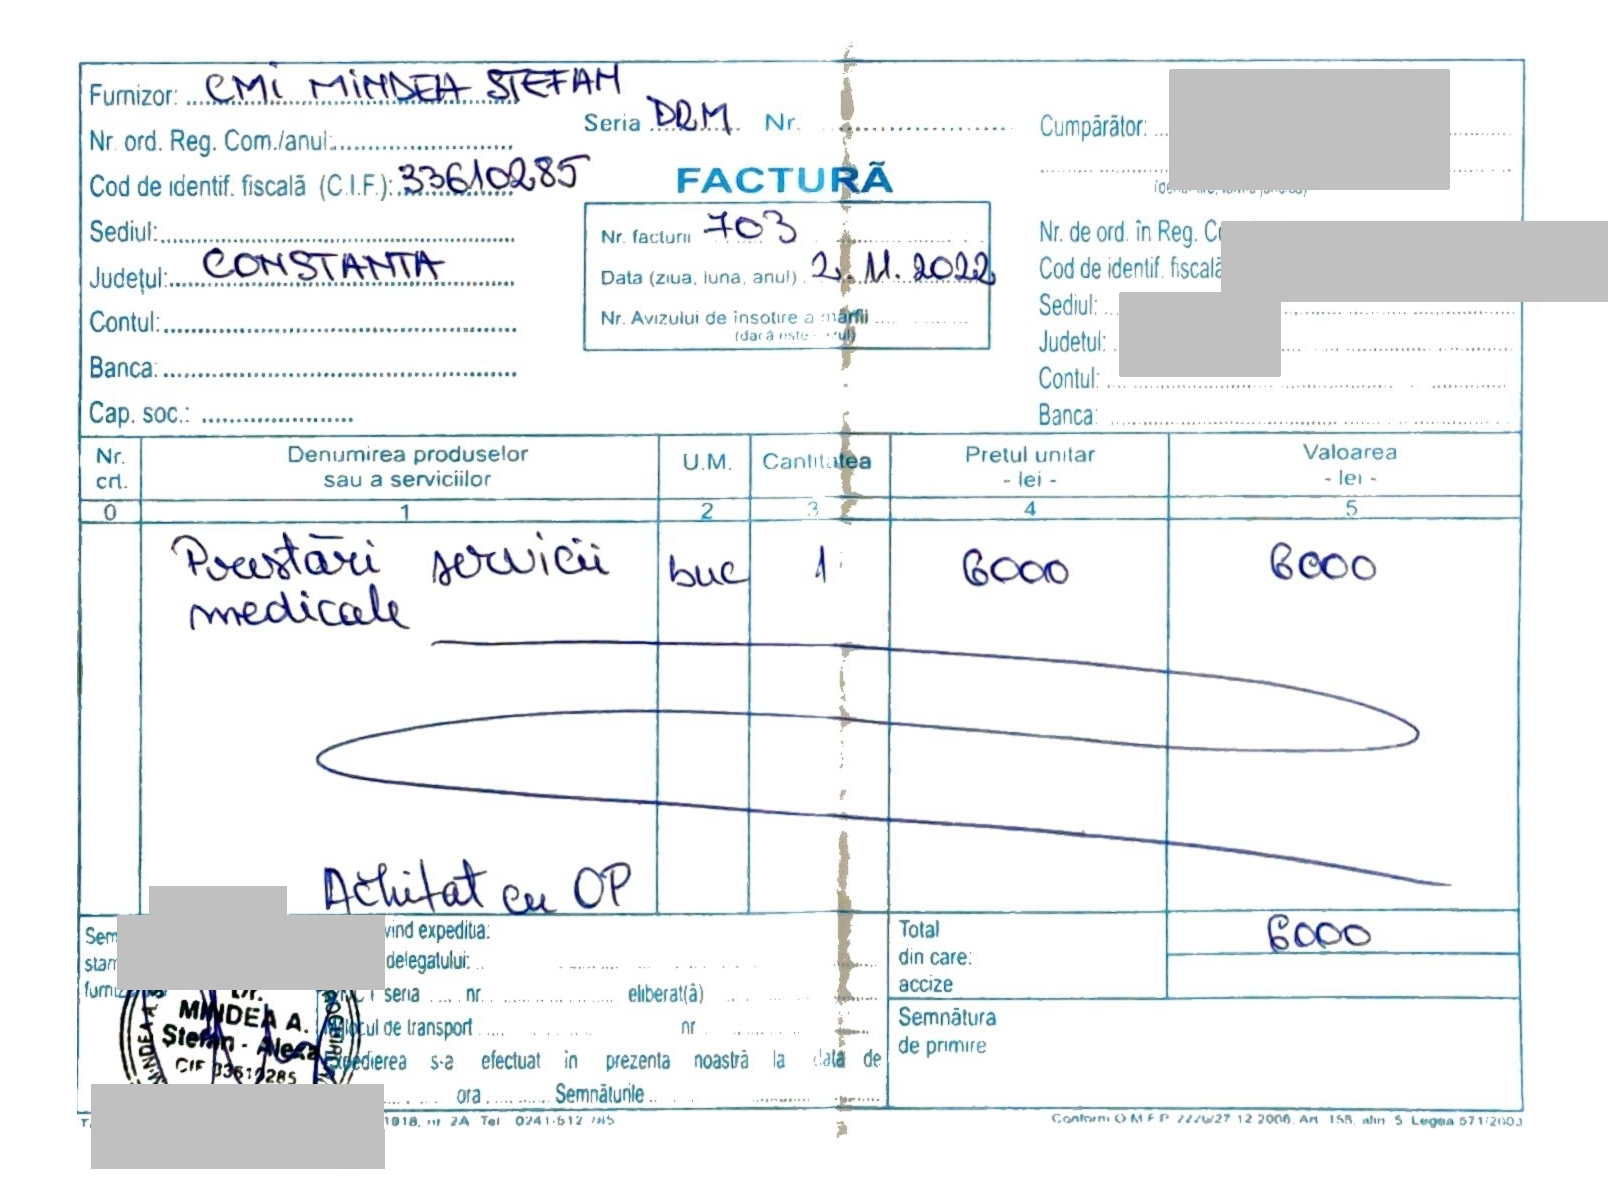 Furnizor: CMI MINDEA STEFAN
Nr. ord. Reg. Com./anul:
Cod de identif. fiscală (C.I.F.): 33610285
Sediul:
Județul: CONSTANTA
Contul:
Banca:
Cap. soc.:
Seria DRM Nr.
FACTURĂ
Nr. facturii 703
Data (ziua, luna, anul) 2. 11. 2022
Nr. Avizului de însotire a mărfii
(dacă este
Cumpărător:
Nr. de ord. în Reg.
Cod de identif. fiscală
Sediul:
Judetul:
Contul:
Banca:
Nr. crt. Denumirea produselor sau a serviciilor U.M. Cantitatea Pretul unitar - lei - Valoarea - lei -
0 1 2 3 4 5
Prestări servicii buc 1 6000 6000
medicale
Achitat cu OP
expeditia:
delegatului:
seria nr. eliberat(ă)
de transport nr
s-a efectuat în prezenta noastră la data de
ora Semnăturile
Total 6000
din care:
accize
Semnătura
de primire
Dr.
MINDEA A.
Ștefan - Alexa
CIF 33610285
1918, nr. 2A Tel 0241-612 785
Conform O.M.F.P. 2226/27.12.2006, Art. 155, alin. 5 Legea 571/2003